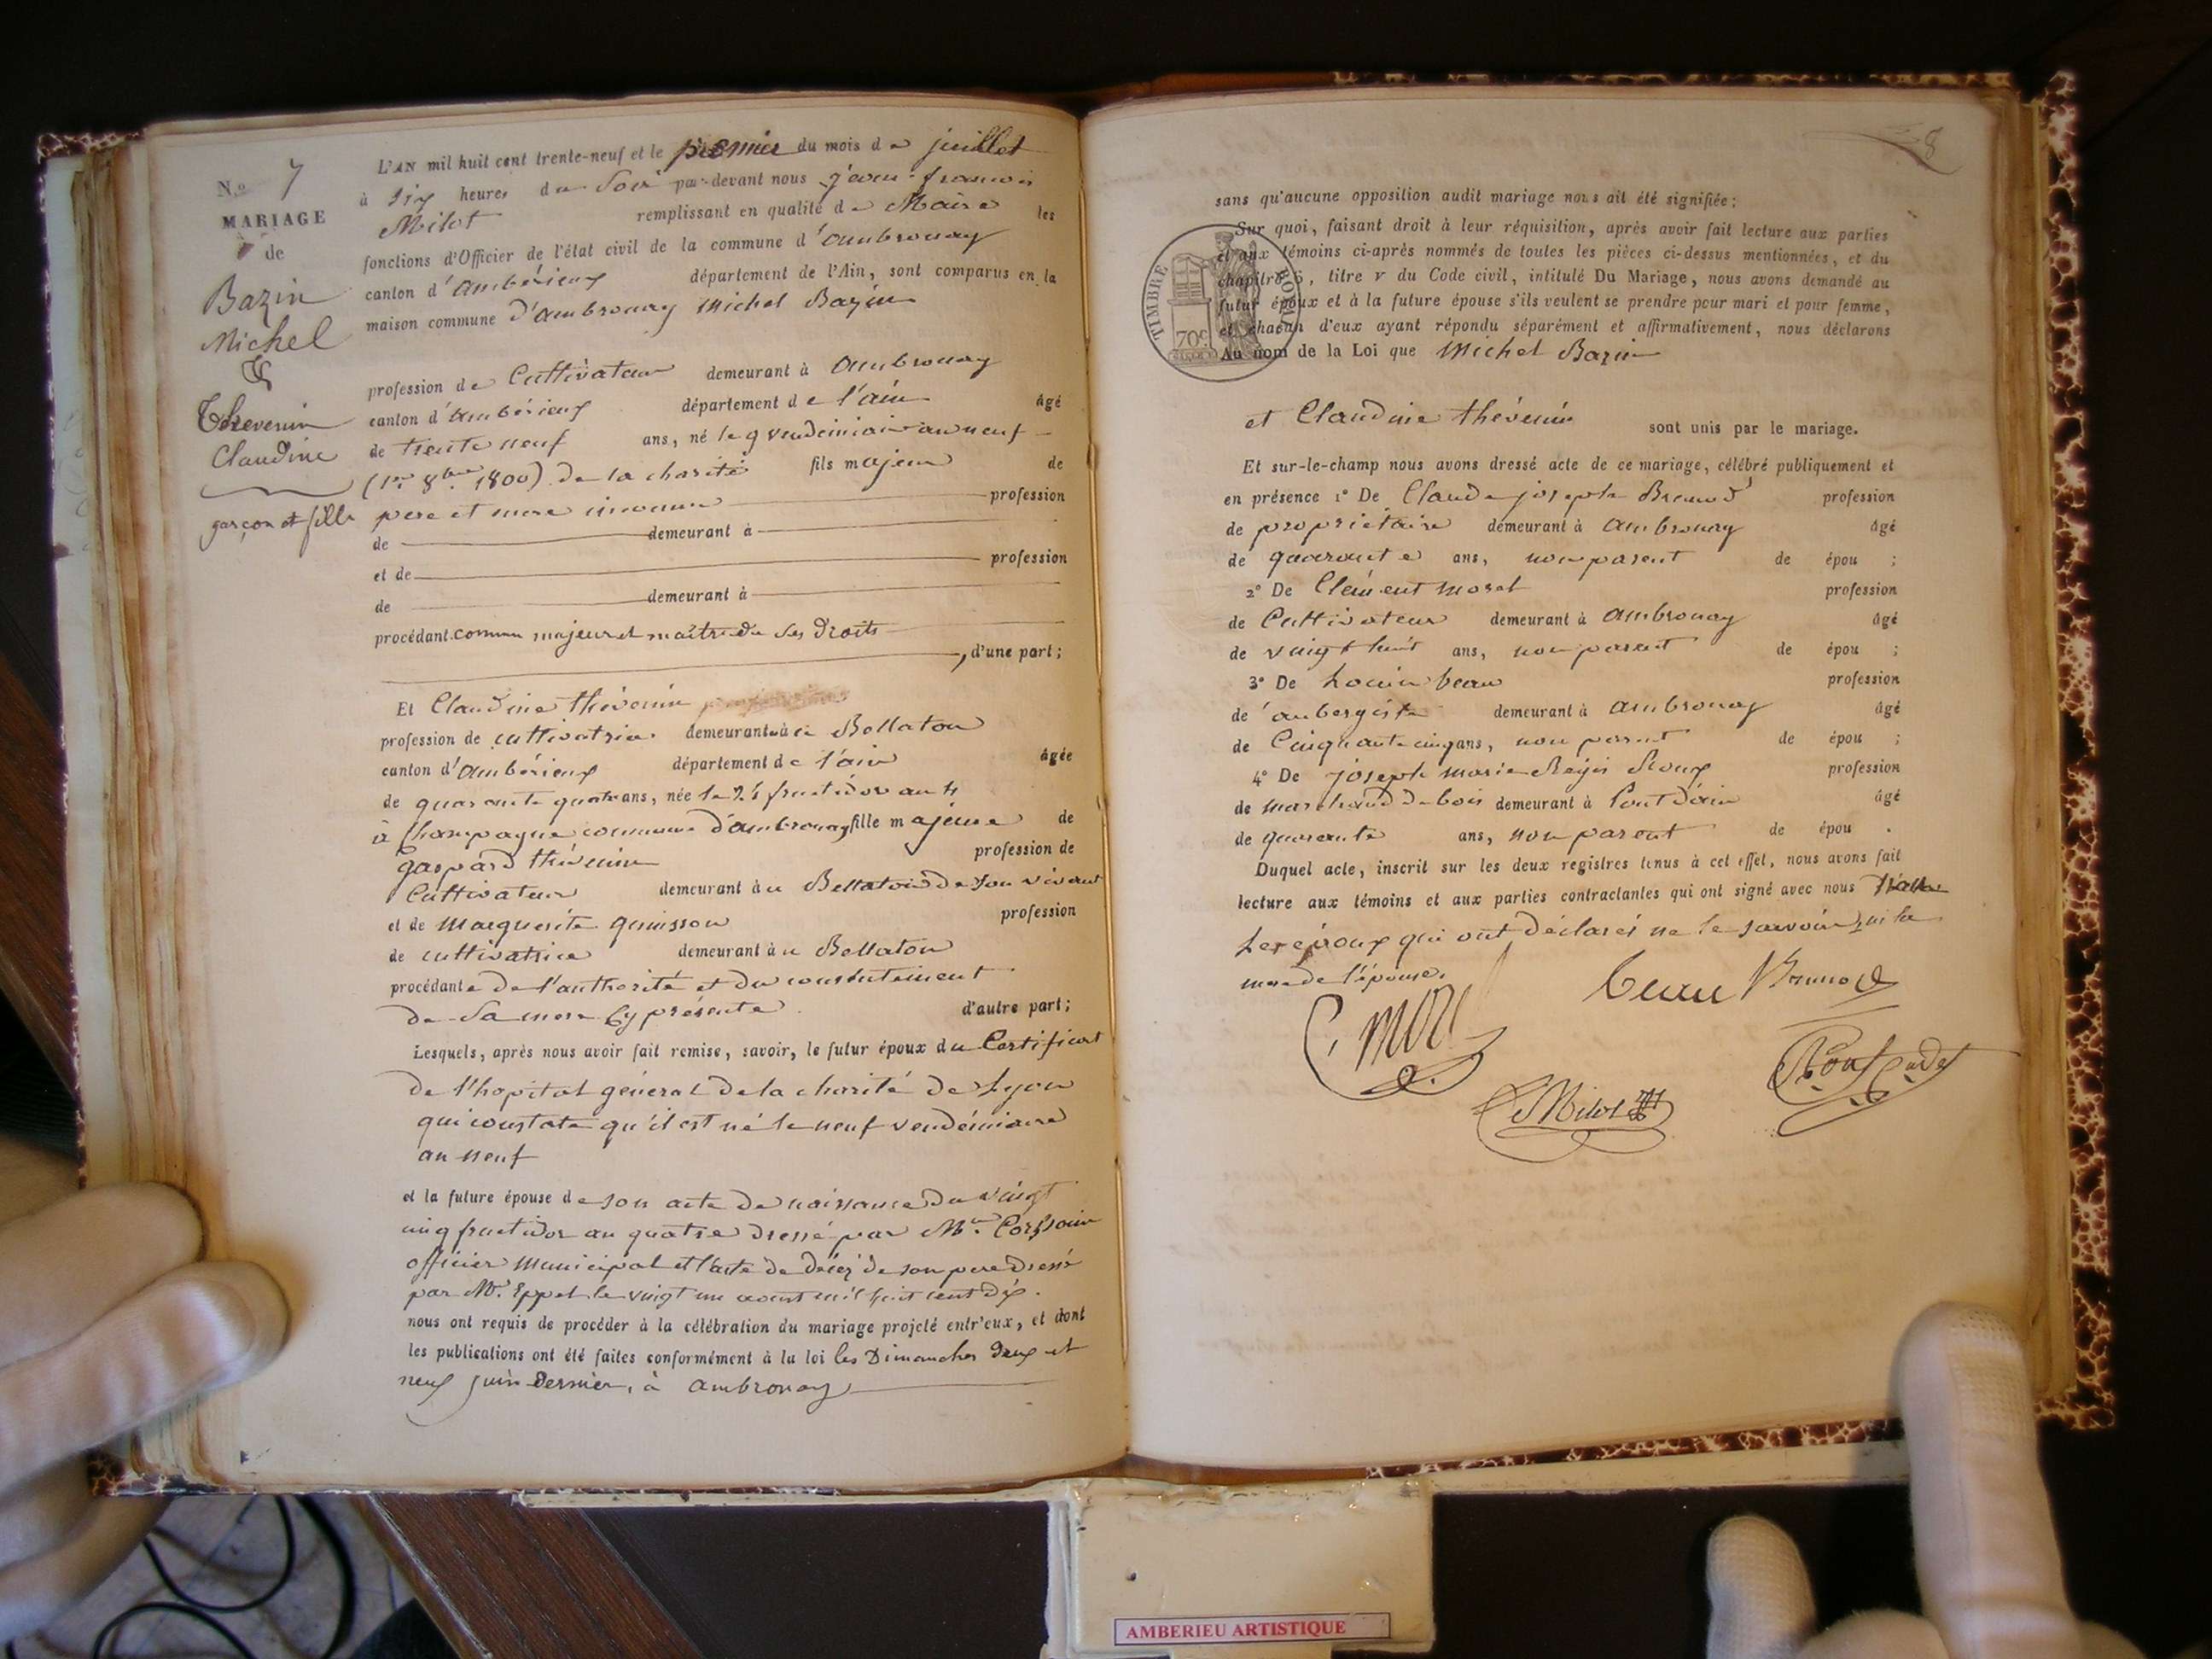 N.o 7
MARIAGE
de
Bazin
Michel
&
Thevenin
Claudine
garçon et fille
L'AN mil huit cent trente-neuf et le premier du mois de juillet
à six heures du Soir par-devant nous jean françois
Milot remplissant en qualité de Maire les
fonctions d'Officier de l'état civil de la commune d'ambronay
canton d'ambérieux département de l'Ain, sont comparus en la
maison commune d'ambronay Michel Bazin
profession de Cultivateur demeurant à ambronay
canton d'ambérieux département de l'ain âgé
de trente neuf ans, né le 9 vendémiaire an neuf
(1er 8bre 1800) de la charité fils majeur de
pere et mere inconnu profession
de demeurant à
et de profession
de demeurant à
procédant comme majeur et maître de ses droits
, d'une part;
Et Claudine thévenin
profession de cultivatrice demeurant à Bellaton
canton d'ambérieux département de l'ain âgée
de quarante quatre ans, née le 25 fructidor an 4
à Champagne commune d'ambronay fille majeure de
gaspard thévenin profession de
Cultivateur demeurant à Bellaton de son vivant
et de Marguerite profession
de cultivatrice demeurant à Bellaton
procédante de l'authorité et du consentement
de Sa mere Cy présente d'autre part;
Lesquels, après nous avoir fait remise, savoir, le futur époux du Certificat
de l'hopital général de la charité de Lyon
qui constate qu'il est né le neuf vendémiaire
an neuf
et la future épouse de son acte de naissance du vingt
cinq fructidor an quatre dressé par Mr.
officier municipal et l'acte de décez de son pere dressé
par Mr. Eppel le vingt un aoust mil huit cent dix.
nous ont requis de procéder à la célébration du mariage projeté entr'eux, et dont
les publications ont été faites conformément à la loi les Dimanches deux et
neuf juin dernier, à ambronay
8
sans qu'aucune opposition audit mariage nous ait été signifiée;
Sur quoi, faisant droit à leur réquisition, après avoir fait lecture aux parties
et aux témoins ci-après nommés de toutes les pièces ci-dessus mentionnées, et du
chapitre 6, titre v du Code civil, intitulé Du Mariage, nous avons demandé au
futur époux et à la future épouse s'ils veulent se prendre pour mari et pour femme,
et chacun d'eux ayant répondu séparément et affirmativement, nous déclarons
Au nom de la Loi que Michel Bazin
TIMBRE ROYAL
70c.
et Claudine thévenin sont unis par le mariage.
Et sur-le-champ nous avons dressé acte de ce mariage, célébré publiquement et
en présence 1° De Claude joseph Brunod profession
de propriétaire demeurant à ambronay âgé
de quarante ans, non parent de épou ;
2° De Clément morel profession
de Cultivateur demeurant à ambronay âgé
de vingt huit ans, non parent de épou ;
3° De Louis beau profession
de aubergiste demeurant à ambronay âgé
de Cinquante cinq ans, non parent de épou ;
4° De joseph marie Régis Roux profession
de marchand de bois demeurant à Pont d'ain âgé
de quarante ans, non parent de épou .
Duquel acte, inscrit sur les deux registres tenus à cet effet, nous avons fait
lecture aux témoins et aux parties contractantes qui ont signé avec nous
Les époux qui ont déclarés ne le savoir, ni la
mere de l'épouse.
Beau Brunod
C. Morel
Milot
AMBERIEU ARTISTIQUE